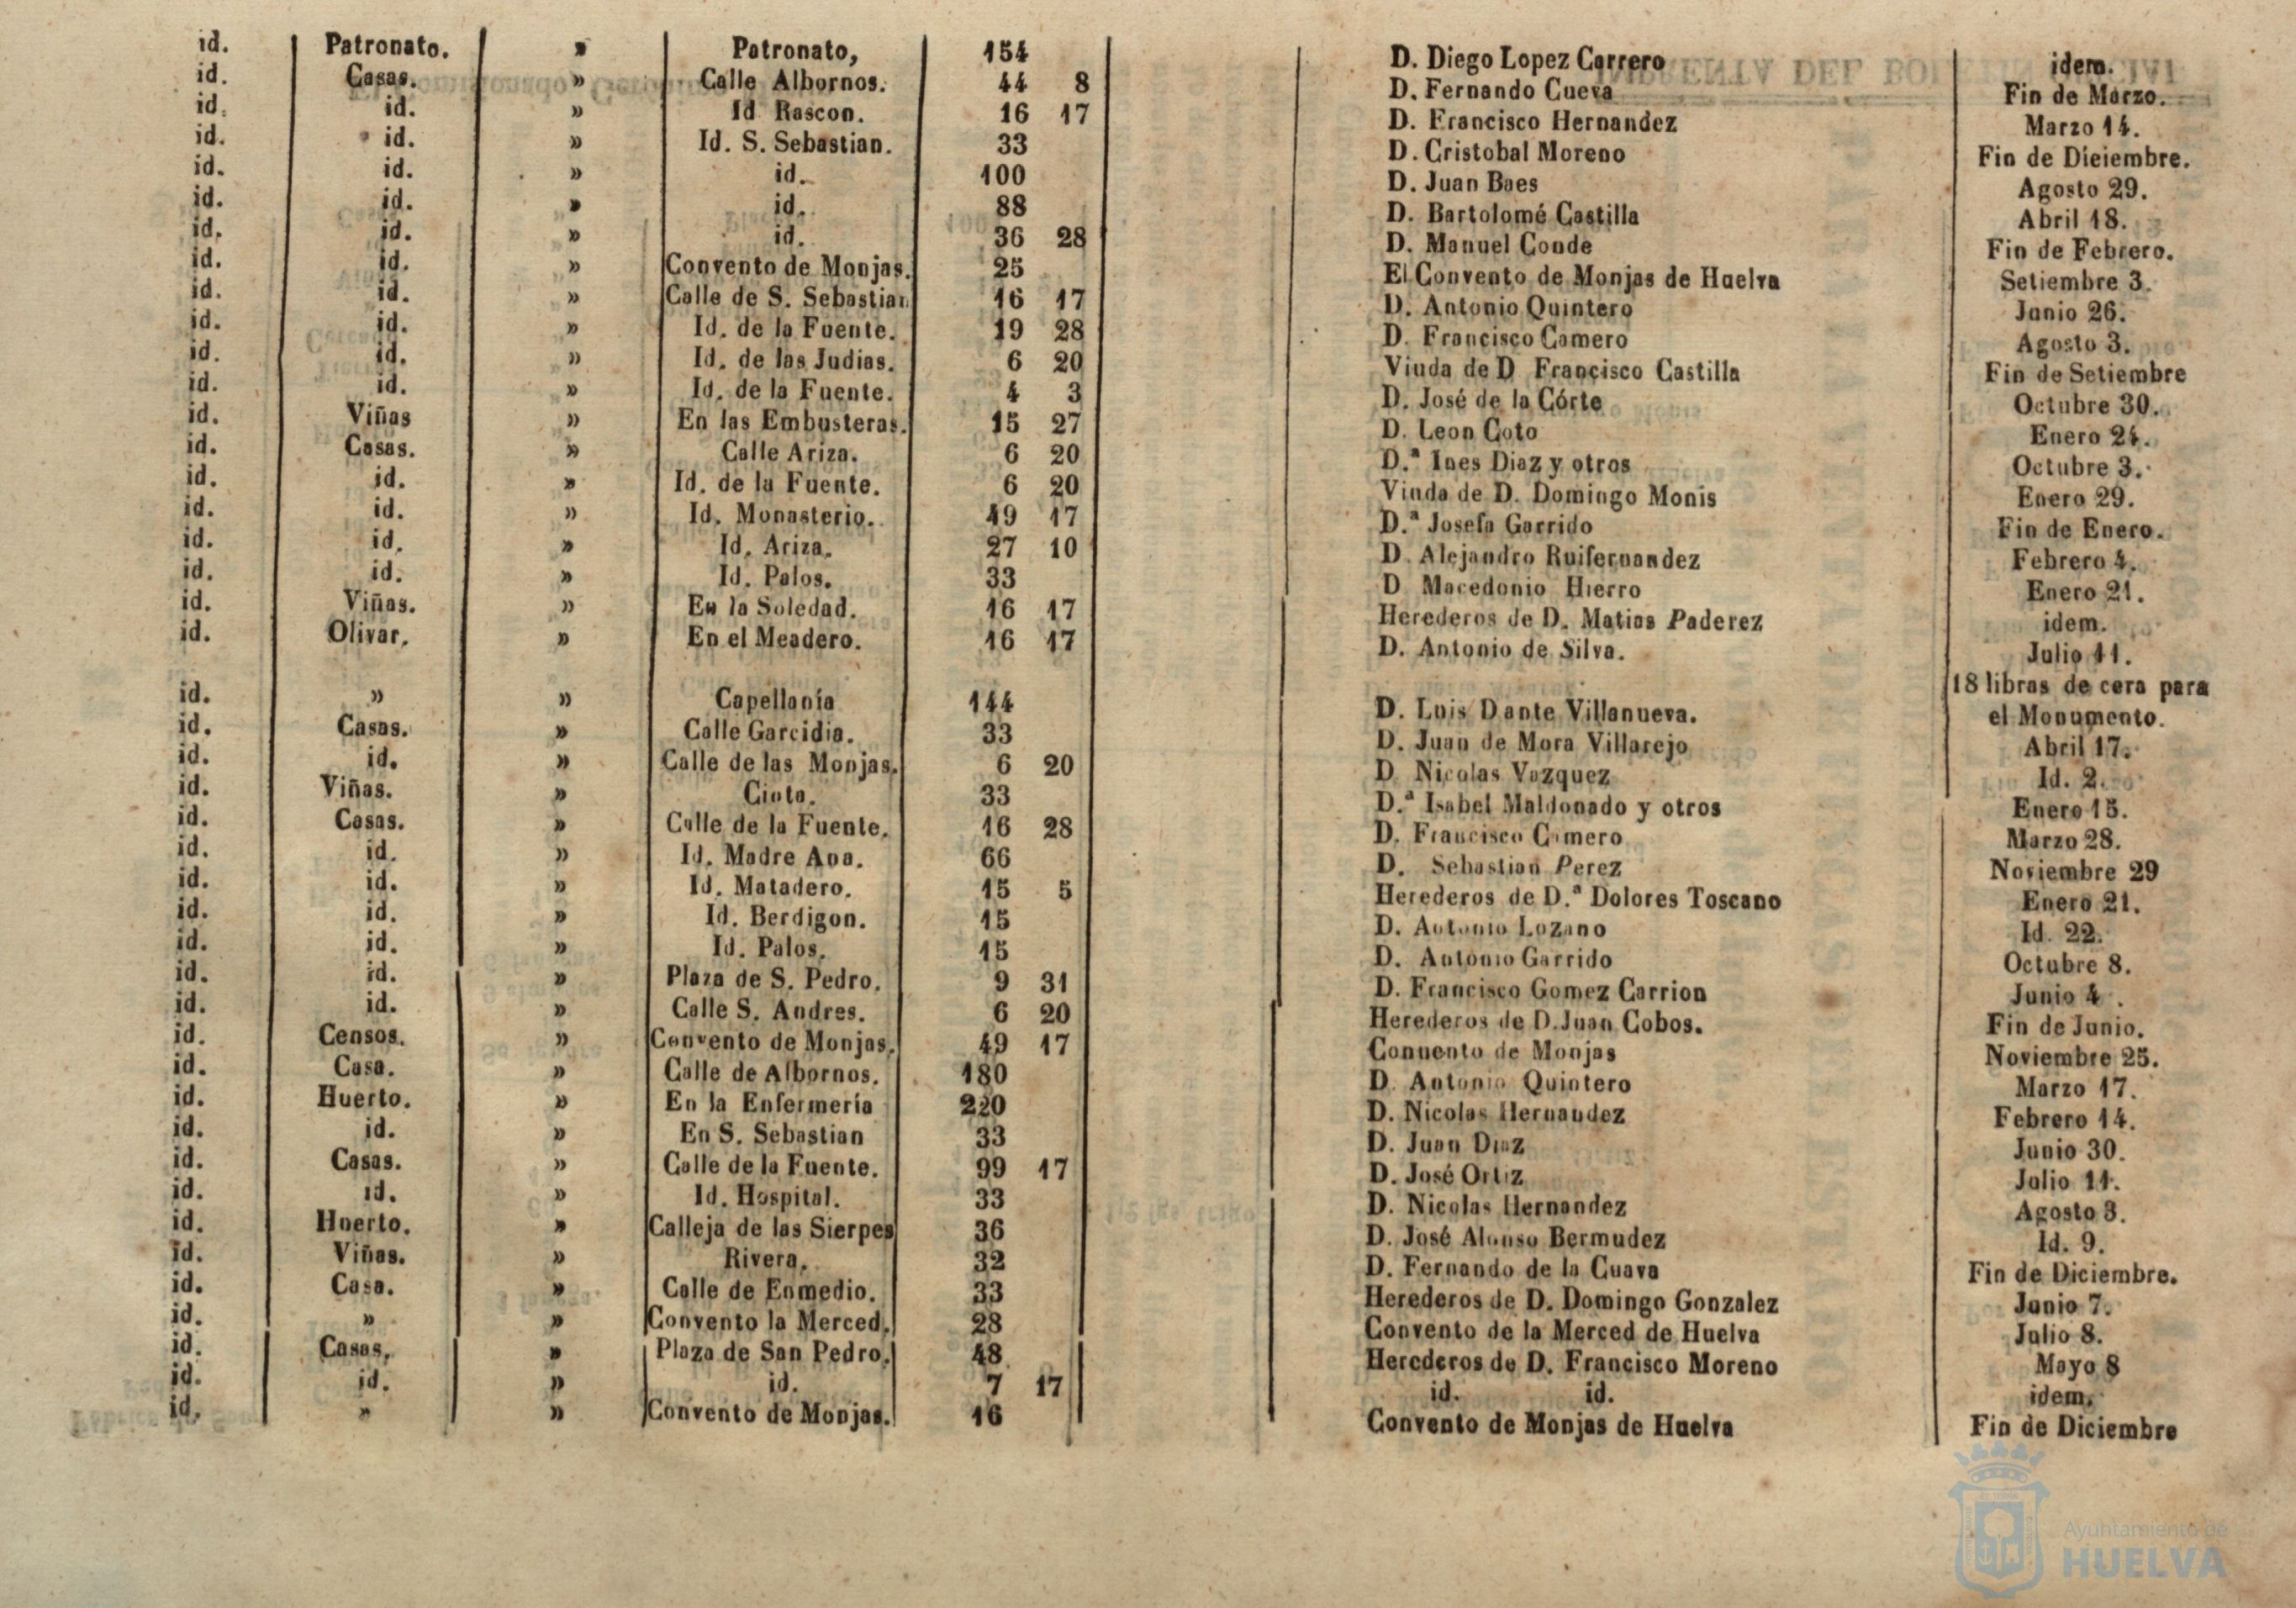 id. Patronato. » Patronato, 154 D. Diego Lopez Carrero idem.
id. Casas. » Calle Albornos. 44 8 D. Fernando Cueva Fin de Marzo.
id. id. » Id Rascon. 16 17 D. Francisco Hernandez Marzo 14.
id. id. » Id. S. Sebastian. 33 D. Cristobal Moreno Fin de Dieiembre.
id. id. » id. 100 D. Juan Baes Agosto 29.
id. id. » id. 88 D. Bartolomé Castilla Abril 18.
id. id. » id. 36 28 D. Manuel Conde Fin de Febrero.
id. id. » Convento de Monjas. 25 El Convento de Monjas de Huelva Setiembre 3.
id. id. » Calle de S. Sebastian 16 17 D. Antonio Quintero Junio 26.
id. id. » Id. de la Fuente. 19 28 D. Francisco Camero Agosto 3.
id. id. » Id. de las Judias. 6 20 Viuda de D Francisco Castilla Fin de Setiembre
id. id. » Id. de la Fuente. 4 3 D. José de la Córte Octubre 30.
id. Viñas » En las Embusteras. 15 27 D. Leon Coto Enero 24.
id. Casas. » Calle Ariza. 6 20 D.ª Ines Diaz y otros Octubre 3.
id. id. » Id. de la Fuente. 6 20 Viuda de D. Domingo Monis Enero 29.
id. id. » Id. Monasterio. 49 17 D.ª Josefa Garrido Fin de Enero.
id. id. » Id. Ariza. 27 10 D. Alejandro Ruifernandez Febrero 4.
id. id. » Id. Palos. 33 D Macedonio Hierro Enero 21.
id. Viñas. » En la Soledad. 16 17 Herederos de D. Matias Paderez idem.
id. Olivar. » En el Meadero. 16 17 D. Antonio de Silva. Julio 11.
18 libras de cera para
id. » » Capellanía 144 D. Luis Dante Villanueva. el Monumento.
id. Casas. » Calle Garcidia. 33 D. Juan de Mora Villarejo Abril 17.
id. id. » Calle de las Monjas. 6 20 D Nicolas Vazquez Id. 2.
id. Viñas. » Cinta. 33 D.ª Isabel Maldonado y otros Enero 15.
id. Casas. » Calle de la Fuente. 16 28 D. Francisco Camero Marzo 28.
id. id. » Id. Madre Ana. 66 D. Sebastian Perez Noviembre 29
id. id. » Id. Matadero. 15 5 Herederos de D.ª Dolores Toscano Enero 21.
id. id. » Id. Berdigon. 15 D. Antonio Lozano Id. 22.
id. id. » Id. Palos. 15 D. Antonio Garrido Octubre 8.
id. id. » Plaza de S. Pedro. 9 31 D. Francisco Gomez Carrion Junio 4.
id. id. » Calle S. Andres. 6 20 Herederos de D. Juan Cobos. Fin de Junio.
id. Censos. » Convento de Monjas. 49 17 Conuento de Monjas Noviembre 25.
id. Casa. » Calle de Albornos. 180 D. Antonio Quintero Marzo 17.
id. Huerto. » En la Enfermería 220 D. Nicolas Hernandez Febrero 14.
id. id. » En S. Sebastian 33 D. Juan Diaz Junio 30.
id. Casas. » Calle de la Fuente. 99 17 D. José Ortiz Julio 11.
id. id. » Id. Hospital. 33 D. Nicolas Hernandez Agosto 3.
id. Huerto. » Calleja de las Sierpes 36 D. José Alonso Bermudez Id. 9.
id. Viñas. » Rivera. 32 D. Fernando de la Cuava Fin de Diciembre.
id. Casa. » Calle de Enmedio. 33 Herederos de D. Domingo Gonzalez Junio 7.
id. » » Convento la Merced. 28 Convento de la Merced de Huelva Julio 8.
id. Casas. » Plaza de San Pedro. 48 Herederos de D. Francisco Moreno Mayo 8
id. id. » id. 7 17 id. id. idem.
id. » » Convento de Monjas. 16 Convento de Monjas de Huelva Fin de Diciembre
Ayuntamiento de
HUELVA